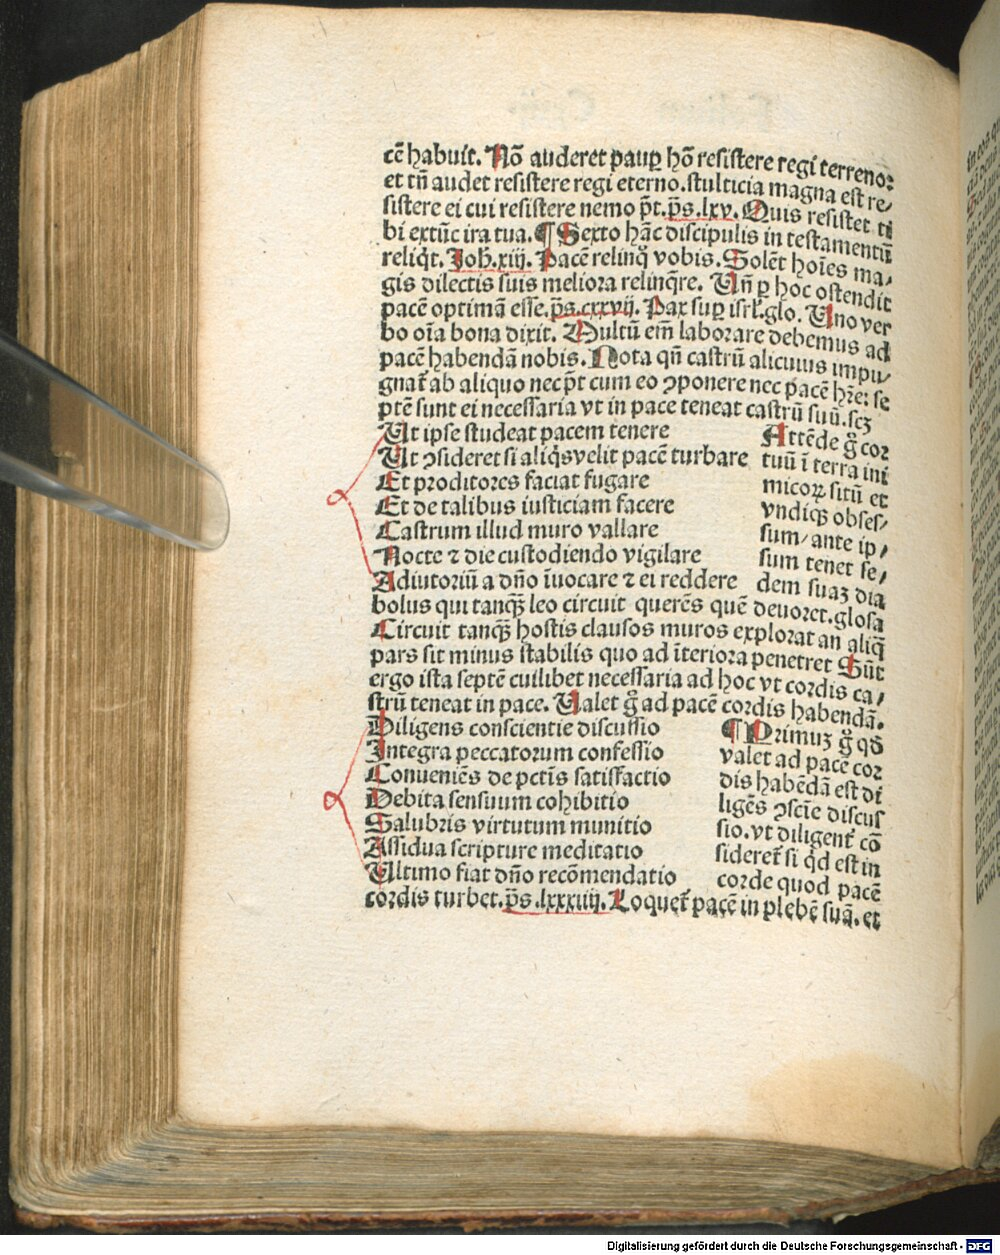 cē habuit. Nō auderet paup̱ hō resistere regi terreno:
et tn̄ audet resistere regi eterno. stulticia magna est re⸗
sistere ei cui resistere nemo p̄t. p̄s. lxv. Quis resistet ti
bi extūc ira tua. ¶ Sexto hāc discipulis in testamentū
reliq̇t. Joh̄. xiij. Pacē relinq̄ vobis. Solēt hoīes ma⸗
gis dilectis suis meliora relinq̄re. Un̄ ꝑ hoc ostendit
pacē optimā esse. p̄s. cxxvij. Pax suꝑ isrl̄. glo. Uno ver
bo oīa bona dixit. Multū em̄ laborare debemus ad
pacē habendā nobis. Nota qn̄ castrū alicuius impu⸗
gnat̄ ab aliquo nec p̄t cum eo ꝯponere nec pacē hr̄e: se
ptē sunt ei necessaria vt in pace teneat castrū suū. scꝫ
Ut ipse studeat pacem tenere
Ut ꝯsideret si aliq̇s velit pacē turbare
Et proditores faciat fugare
Et de talibus iusticiam facere
Castrum illud muro vallare
Nocte ⁊ die custodiendo vigilare
Adiutoriū a dn̄o īuocare ⁊ ei reddere
Attēde g̊ cor
tuū ī terra ini
micoꝝ sitū et
vndiqꝫ obses⸗
sum/ ante ip⸗
sum tenet se⸗
dem suaꝫ dia
bolus qui tanqꝫ̄ leo circuit querēs quē deuoret. glosa
Circuit tanqꝫ̄ hostis clausos muros explorat an aliq̄
pars sit minus stabilis quo ad īteriora penetret Sūt
ergo ista septē cuilibet necessaria ad hoc vt cordis ca⸗
strū teneat in pace. Ualet g̊ ad pacē cordis habendā.
Diligens conscientie discussio
Integra peccatorum confessio
Conueniēs de pctīs satisfactio
Debita sensuum cohibitio
Salubris virtutum munitio
Assidua scripture meditatio
Ultimo fiat dn̄o recōmendatio
¶ Primuꝫ g̊ qd̄
valet ad pacē cor
dis habēdā est di
ligēs ꝯsciē discus
sio. vt diligent̄ cō
sideret̄ si qd̄ est in
corde quod pacē
cordis turbet. p̄s. lxxxiiij. Loquet̄ pacē in plebē suā. et
Digitalisierung gefördert durch die Deutsche Forschungsgemeinschaft - DFG